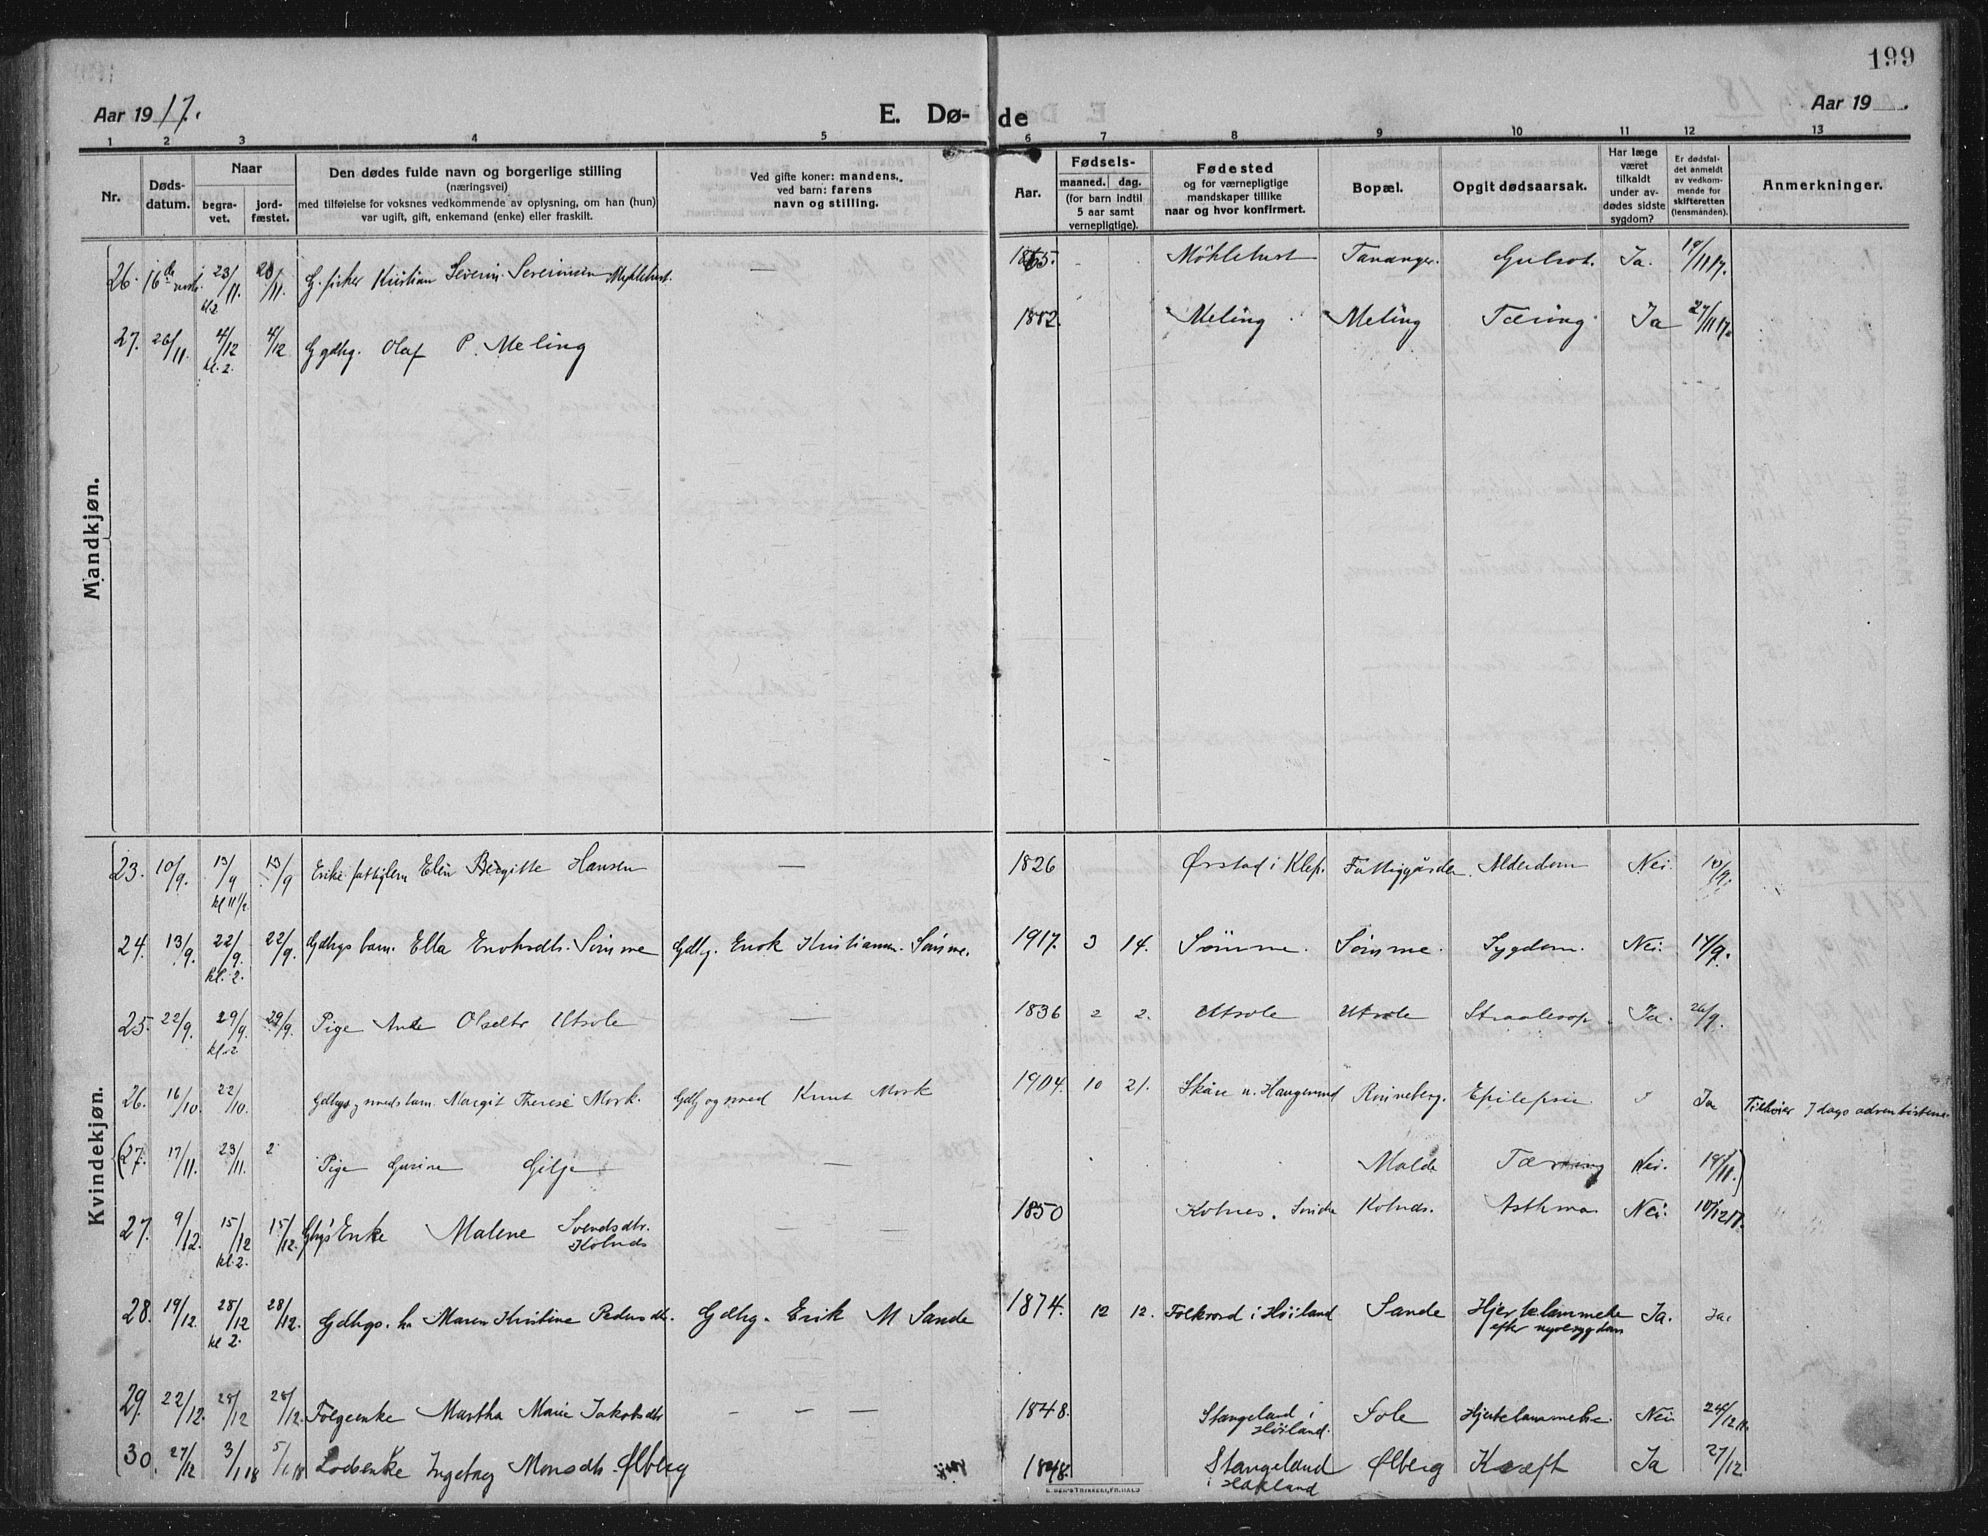 199
Aar 1917.
E. Dø- de
Aar 19 .
1 2 3 4 5 6 7 8 9 10 11 12 13
Nr.
Døds-
datum.
Naar
begra-
vet.
jord-
fæstet.
Den dødes fulde navn og borgerlige stilling
(næringsvei)
med tilføielse for voksnes vedkommende av oplysning, om han (hun)
var ugift, gift, enkemand (enke) eller fraskilt.
Ved gifte koner: mandens,
ved barn: farens
navn og stilling.
Aar.
Fødsels-
maaned. dag.
(for barn indtil
5 aar samt
vernepligtige).
Fødested
og for værnepligtige
mandskaper tillike
naar og hvor konfirmert.
Bopæl.
Opgit dødsaarsak.
Har læge
været
tilkaldt
under av-
dødes sidste
sygdom?
Er dødsfal-
det anmeldt
av vedkom-
mende for
skifteretten
(lensmanden).
Anmerkninger.
Mandkjøn.
26. 23/11. kl. 2 G. fisker Kristian Severin Severinsen Myklebust. — Tananger. Gulsot. Ja. 19/11 17.
27. 26/11. 4/12 kl. 2. 4/12 Gdbg. Olaf P. Meling 1882. Meling Meling Tæring. Ja 27/11 17.
Kvindekjøn.
23. 10/9. 13/9 kl 11 1/2 13/9 Enke fattiglem Elin Bergitte Hansen — 1826 Ørstad i Klep. Fattiggården. Alderdom Nei.
24. 13/9. 22/9. kl. 2. 22/9. Gdbgs barn. Ella Enoksdtr. Sømme Gdbg. Enok Kristiansen Sømme. 1917. 3 14. Sømme. Sømme. Sygdom. Nei. 14/9.
25. 22/9. 29/9. kl. 2 29/9. Pige Olsdtr Utsole — 1836 2 2. Utsole Utsole Ja. 26/9.
26. 16/10. 22/10. Margit Therese Mork. Gdbg og smed Knut Mork 1904. 10 21. Skåre n. Haugesund Rønneberg. Epilepsie. Ja Tilhører 7 dags adventisterne.
(27. 17/11. 23/11. 2 Pige Gurine Gilje — Malde Tæring Nei. 19/11.)
27. 9/12. 15/12 kl. 2. 15/12. Gbgs Enke Malene Svendsdtr. Kolnes — — 1850 Kolnes. Kolnes. Asthma Nei.
28. 19/12. 28/12 kl 2. 28/12. Gdbgs. h. Maren Kristine Pedersdtr. Gdbg. Erik M Sande 1874. 12 12. Folkvord i Høiland Sande Hjertelammelse
efter nyresygdom Ja. Ja.
29. 22/12. 28/12 28/12. Folgeenke Martha Marie Jakobsdtr — — — 1848. Stangeland i
Høiland. Sole Hjertelammelse. Nei
30. 27/12 3/1 18 5/1 18 Lodsenke Ingeborg Monsdtr. Ølberg 1848. Stangeland
i Høiland Ølberg Kræft Ja 27/12